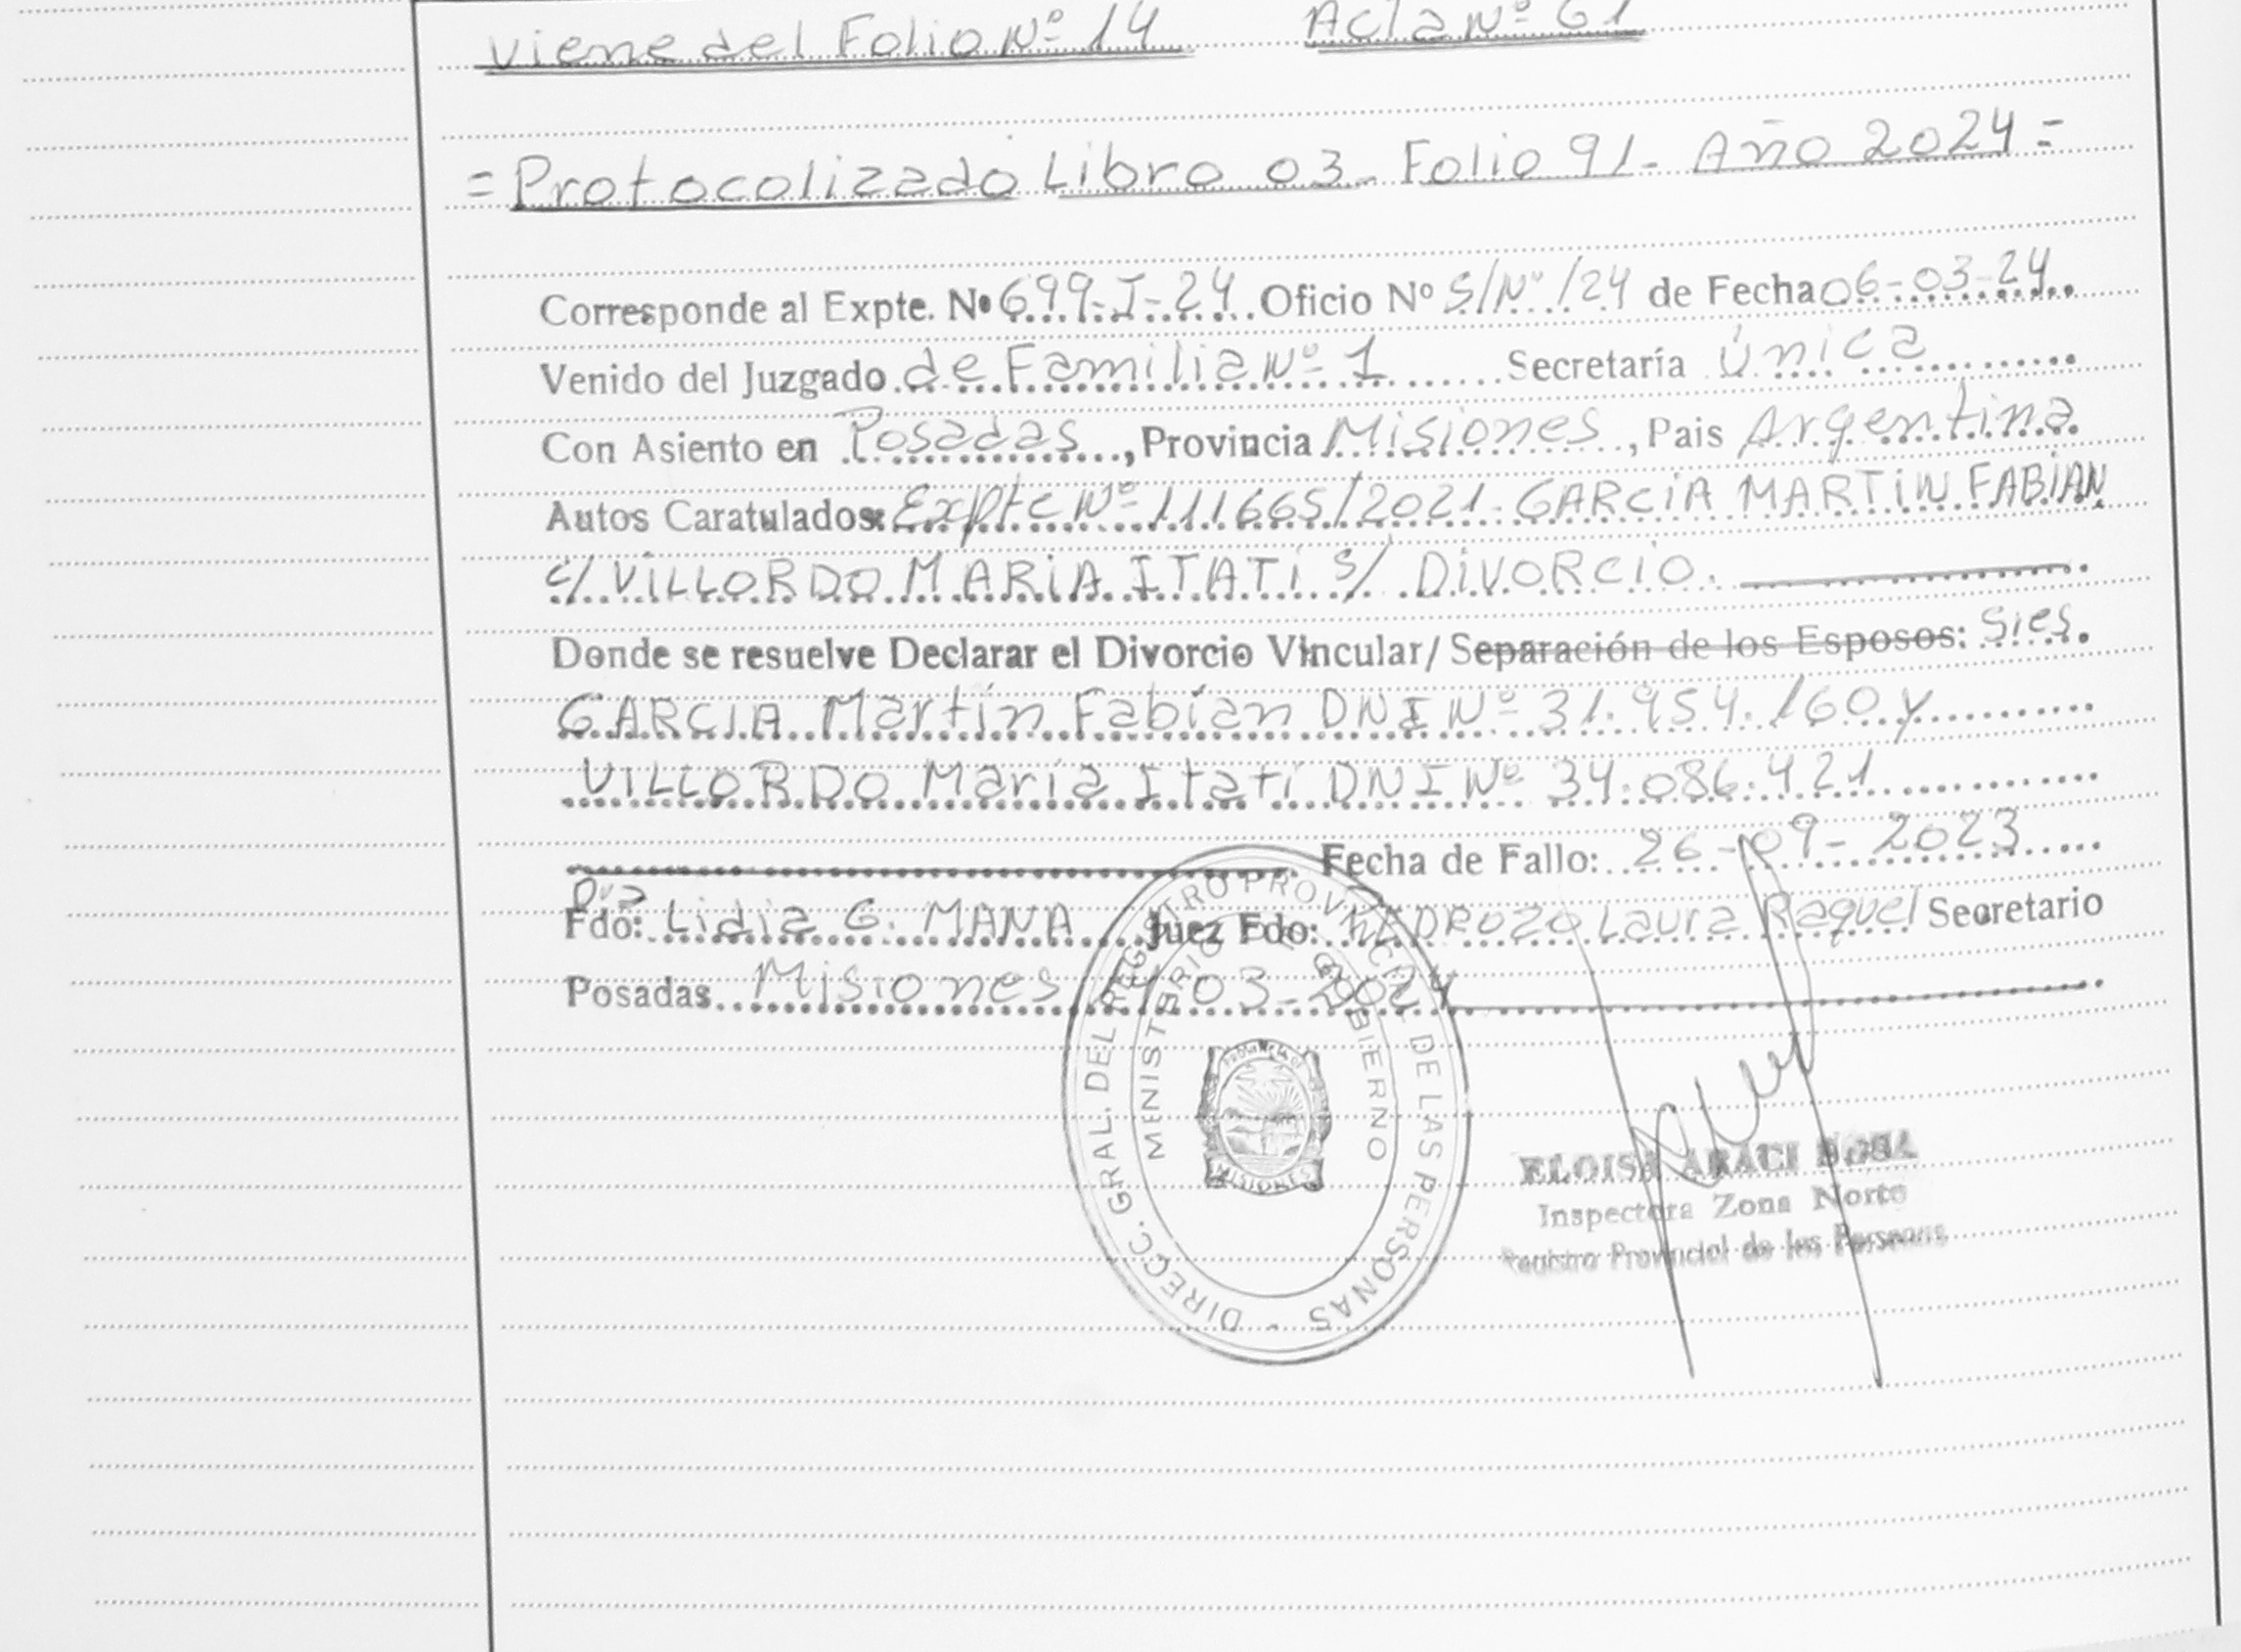 Viene del Folio Nº 14 Acta Nº 61
= Protocolizado Libro 03- Folio 91- Año 2024 =
Corresponde al Expte. Nº 699-I-24 Oficio Nº S/Nº/24 de Fecha 06-03-24
Venido del Juzgado de Familia Nº 1 Secretaría Única
Con Asiento en Posadas, Provincia Misiones, Pais Argentina
Autos Caratulados: Expte Nº 111665/2021- GARCIA MARTIN FABIAN
c/ VILLORDO MARIA ITATI s/ DIVORCIO.
Donde se resuelve Declarar el Divorcio Vincular/ Separación de los Esposos: Sres
GARCIA Martín Fabián DNI Nº 31.954.160 y
VILLORDO María Itatí DNI Nº 34.086.421
Fecha de Fallo: 26-09-2023
Dra
Fdo: Lidia G. MANA Juez Fdo: Laura Raquel Secretario
Posadas Misiones 03-2024
DIRECC. GRAL. DEL REGISTRO PROVINCIAL DE LAS PERSONAS
MENISTERIO DE GOBIERNO
PROVINCIA DE
MISIONES
ELOISA ARACI
Inspectora Zona Norte
Registro Provincial de las Personas